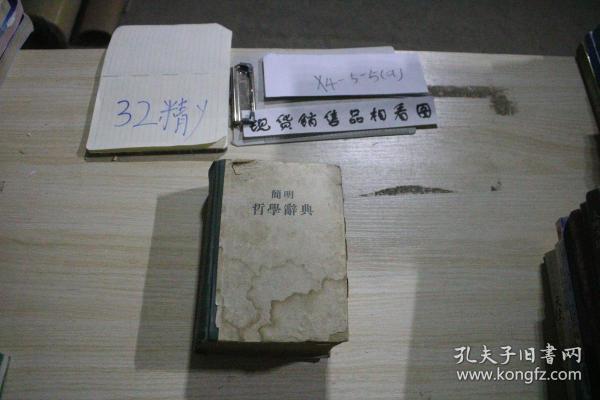 32精y
X4-5-5(a)
现货销售品相看图
簡明
哲學辭典
孔夫子旧书网
www.kongfz.com